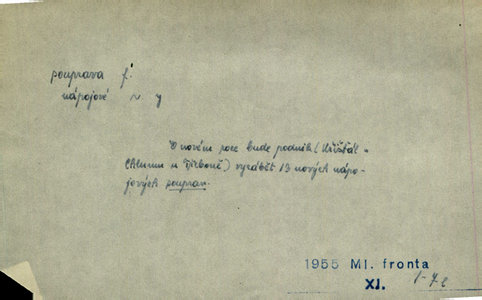 souprava f.
nápojové ~ y
V novém roce bude podnik (Křišťál -
Chlum u Třeboně) vyrábět 13 nových nápo-
jových souprav.
1955 Ml. fronta
XI.